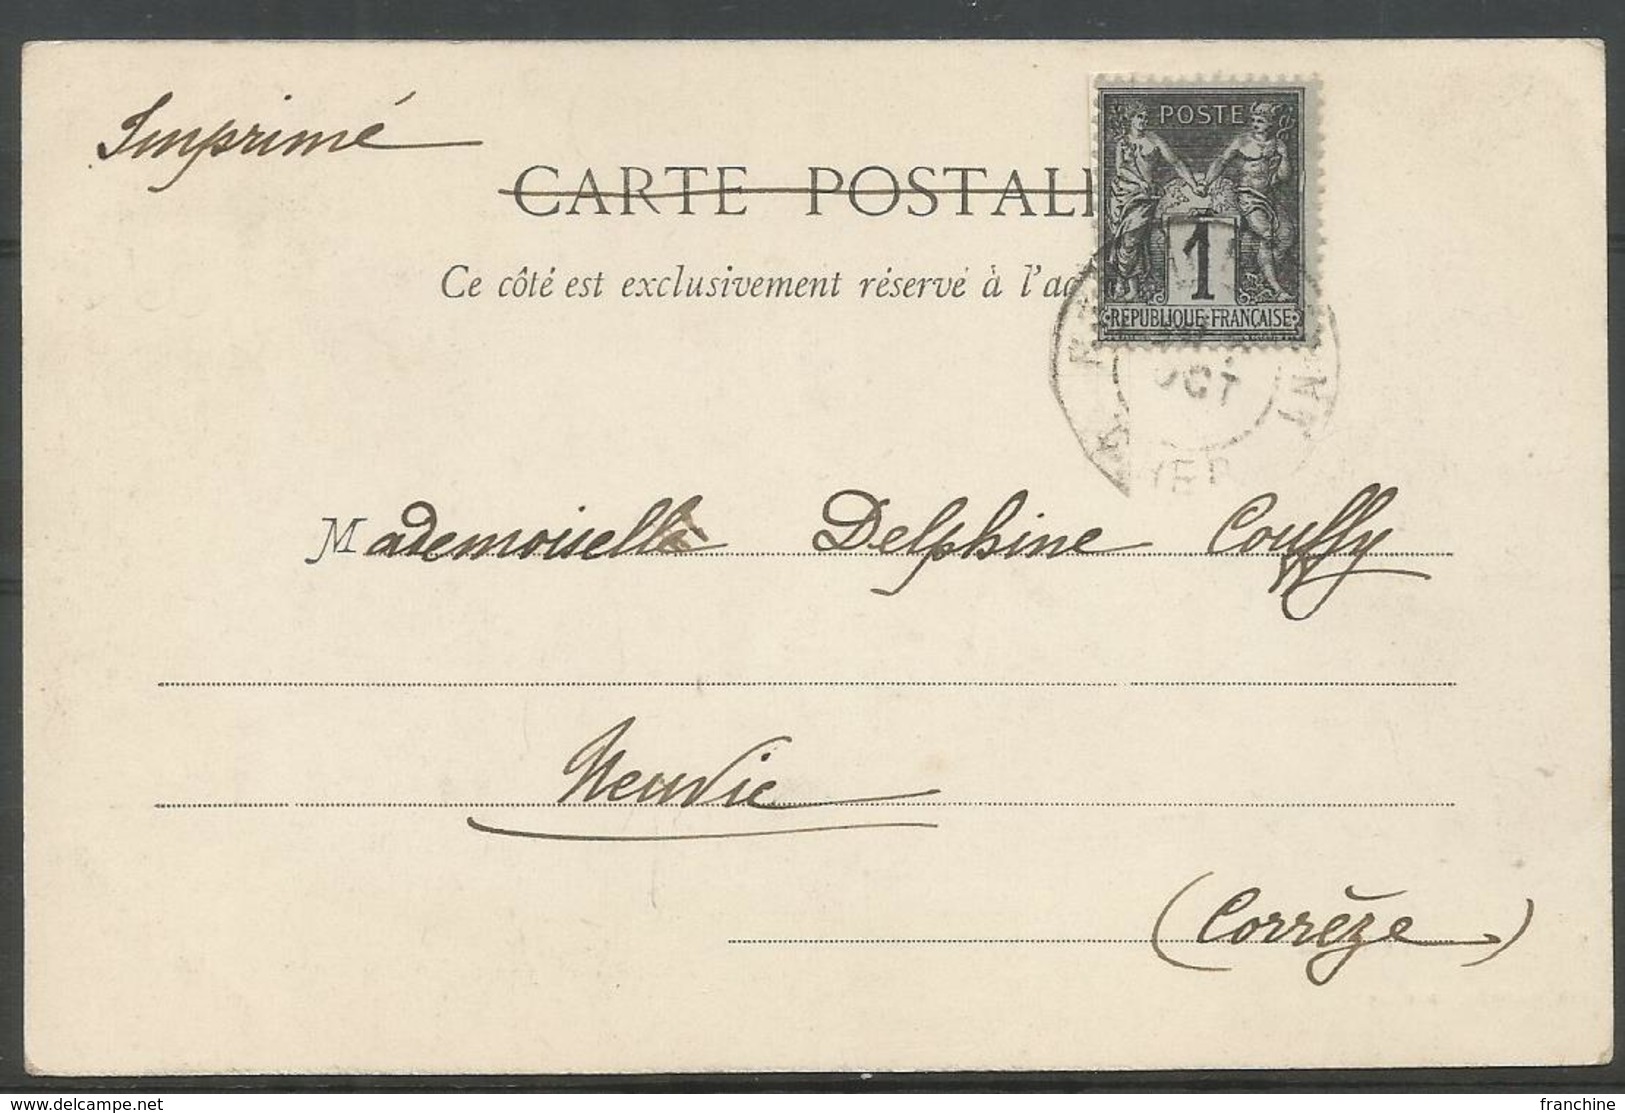 Imprimé
CARTE POSTALE
Ce côté est exclusivement réservé à l'ad
POSTE
1
REPUBLIQUE FRANÇAISE
OCT
Mademoiselle Delphine Couffy
Neuvic
(Corrèze)
www.delcampe.net
franchine